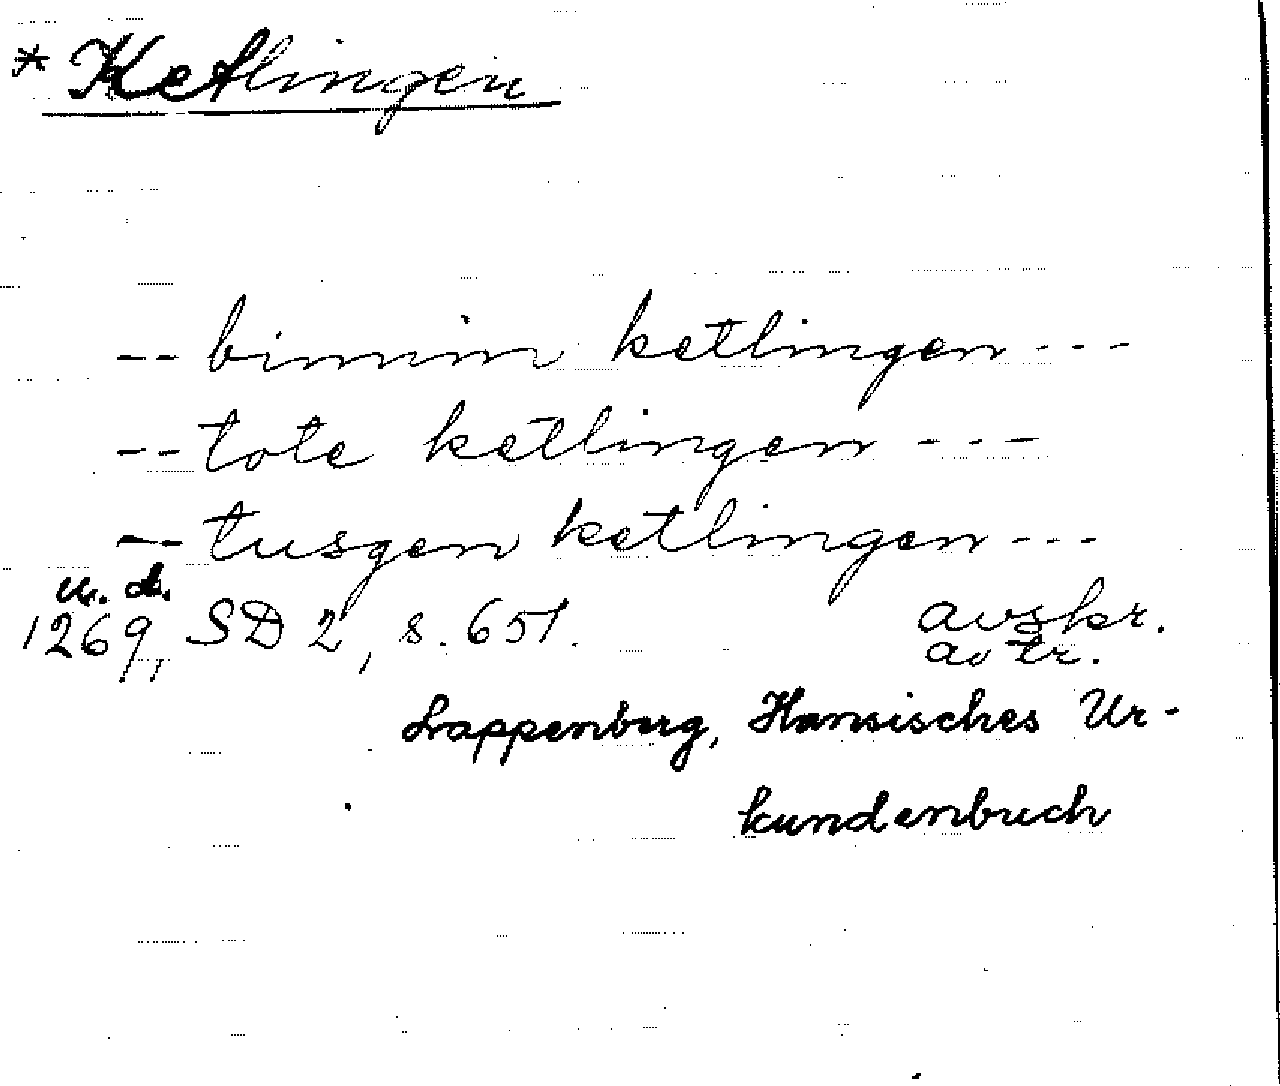 * Ketlingen
-- binnin ketlingen ---
-- tote ketlingen ---
-- tusgen ketlingen ---
u. d.
1269, SD 2, s. 651. avskr.
avtr.
Lappenberg, Hansisches Ur-
kundenbuch